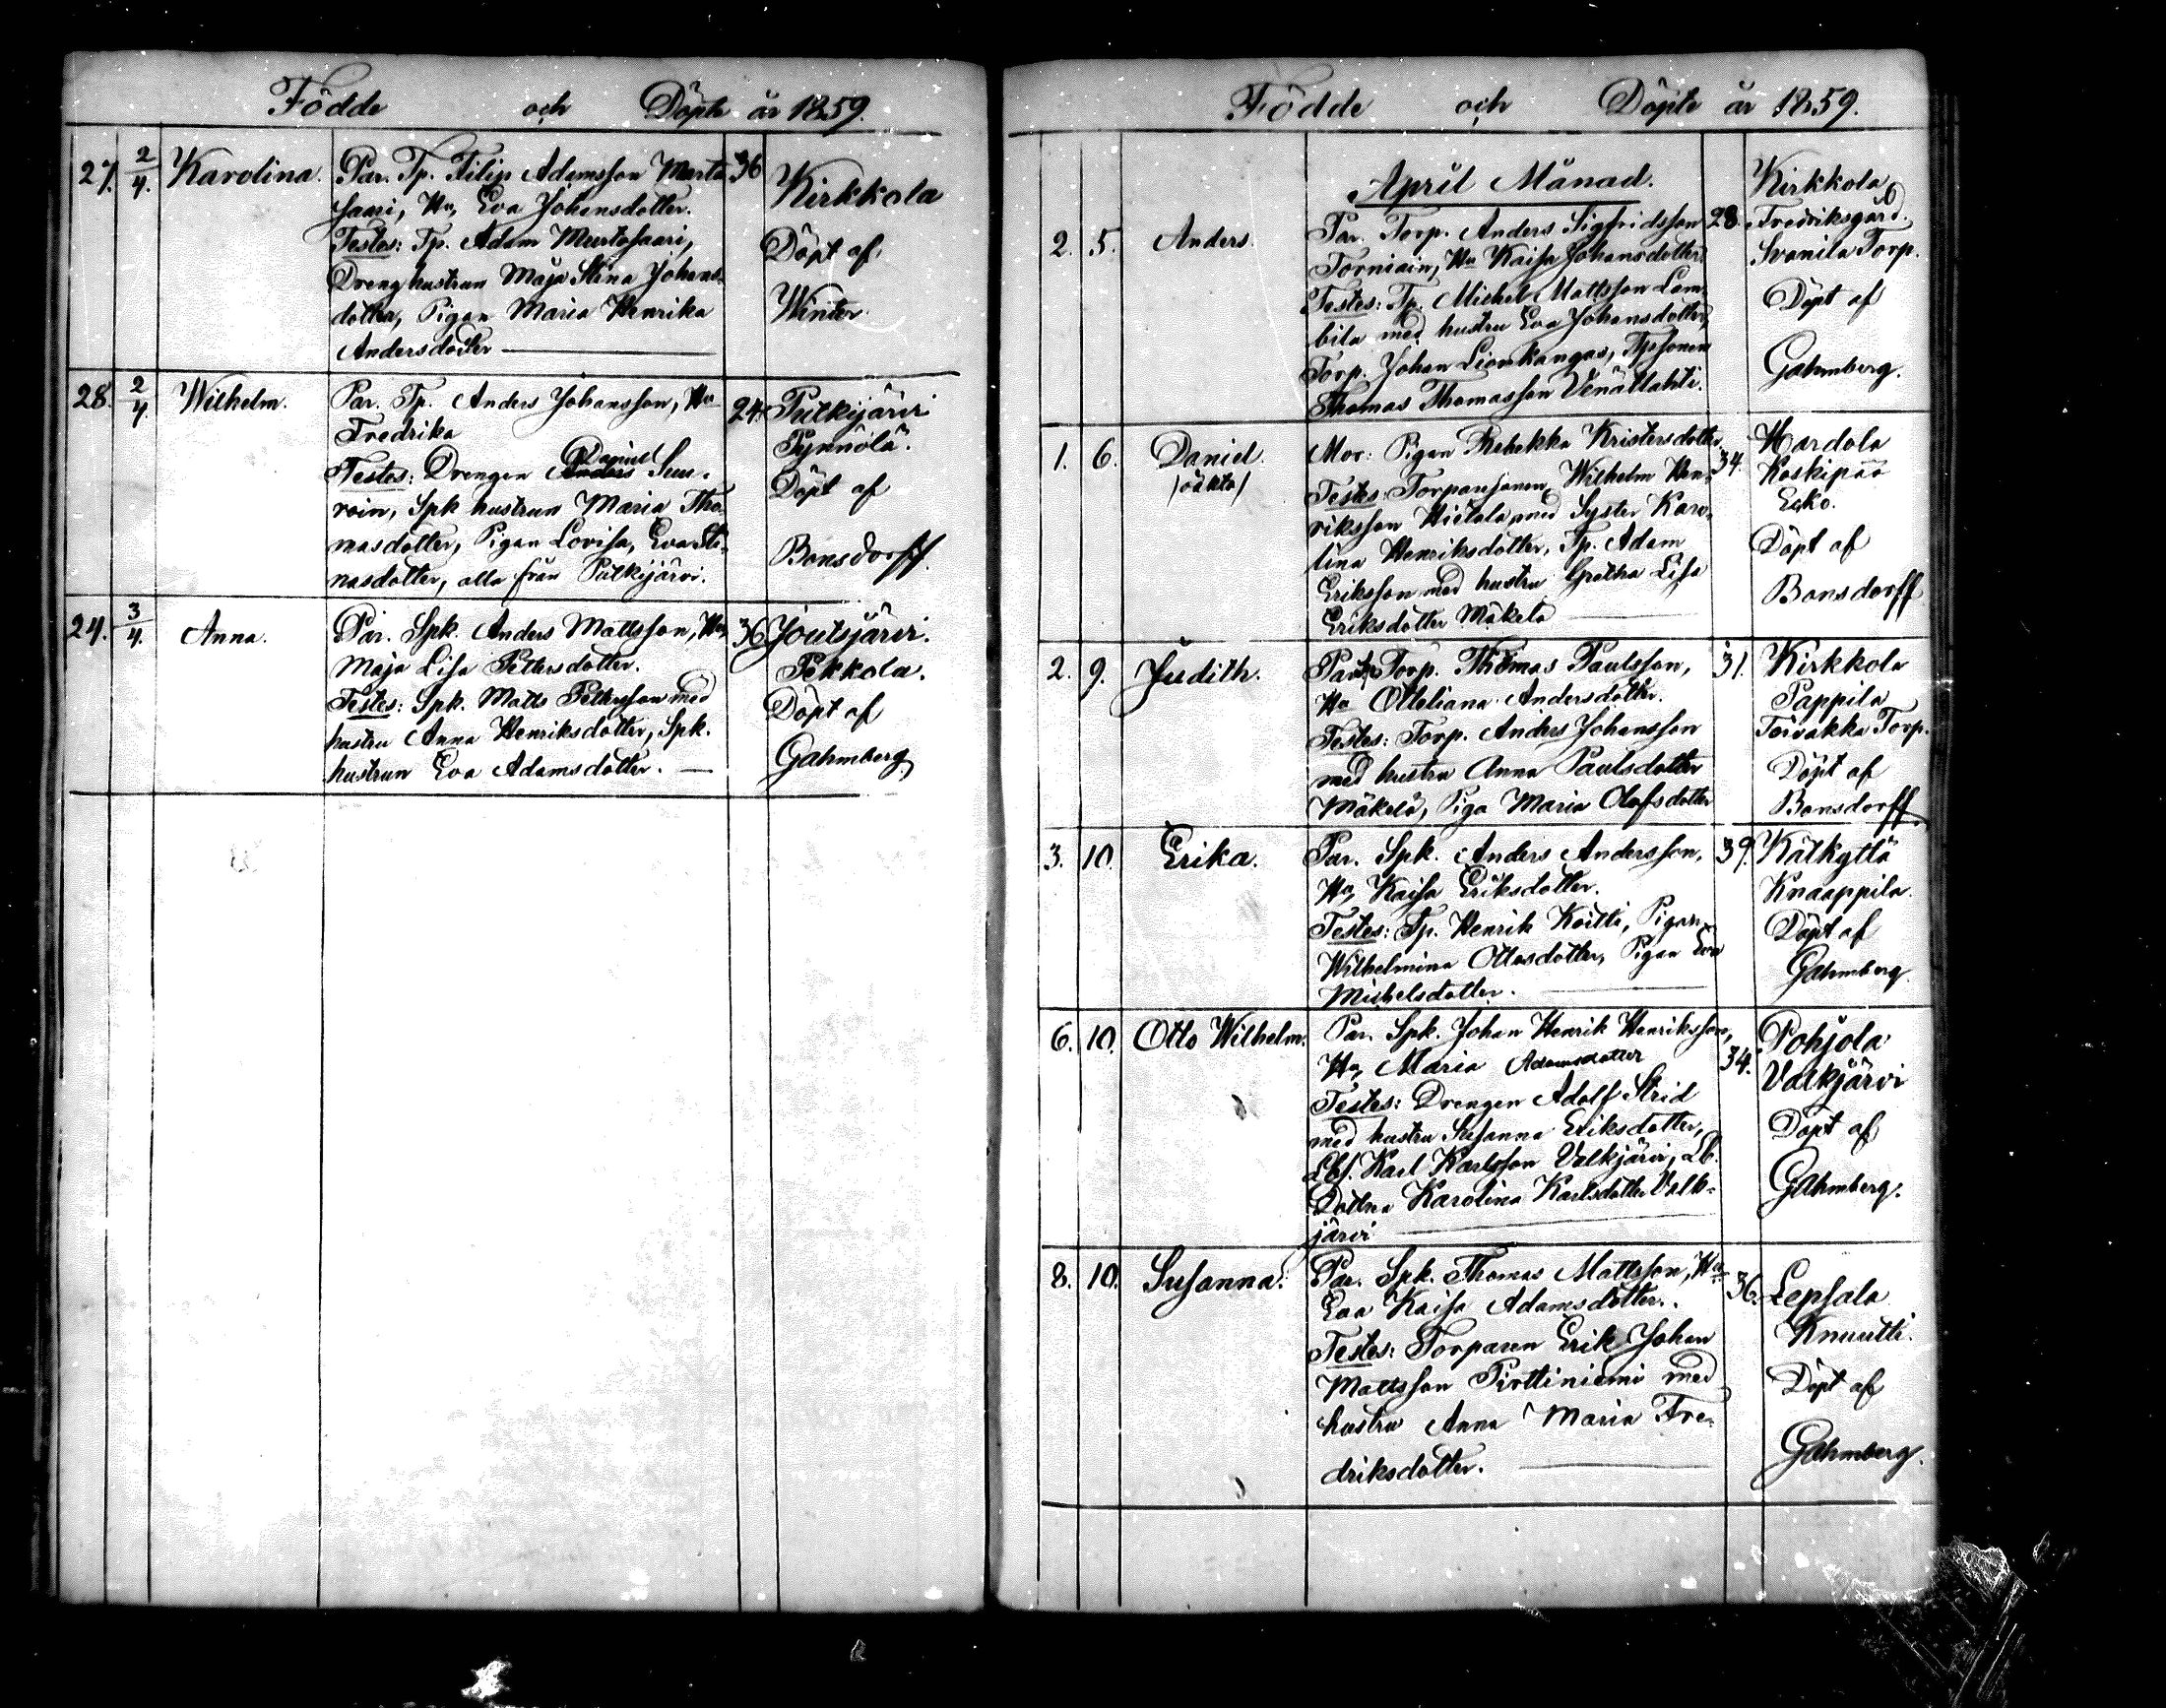 Födde och Döpte år 1859.
27. 2/4. Karolina. Par. Tp. Filip Adamsson Murto 36 Kirkkola
saari, Hu, Eva Johansdotter.
Testes: Tp. Adam Murtosaari, Döpt af
Dreng hustrun Maja Stina Johans- Winter
dotter, Pigan Maria Henrika
Andersdotter
28. 2/4. Wilhelm. Par. Tp. Anders Johansson, Hu 24. Pulkijärvi
Fredrika Pynnölä.
Testes: Drengen Daniel Suu- Döpt af
roin, Spk hustrun Maria Tho-
masdotter, Pigan Lovisa, Eva Sti- Bonsdorff.
nasdotter, alla från Pulkijärvi.
24. 3/4. Anna. Par. Spk. Anders Mattsson, Hu, 36 Joutsjärvi.
Maja Lisa Pettersdotter. Pekkola.
Testes: Spk. Matts Pettersson med Döpt af
hustru Anna Henriksdotter, Spk. Gahmberg.
hustrun Eva Adamsdotter.
Födde och Döpte år 1859.
April Månad. Kirkkola
2. 5. Anders. Par. Torp. Anders Sigfridsson 28. Fredriksgård.
Torniain, Hu Kaisa Johansdotter. Svanila Torp.
Testes: Tp. Michel Mattsson Lam- Döpt af
bila med hustru Eva Johansdotter,
Torp. Johan Lionkangas, Tpsonen Gahmberg.
Thomas Thomasson Venättahti.
1. 6. Daniel. Mor: Pigan Rebekka Kristersdotter, 34. Hardola
/oäkta/ Testes: Torparsonen Wilhelm Hen- Koskipää
riksson Hietala med Syster Karo- Ecko.
lina Henriksdotter, Tp. Adam Döpt af
Eriksson med hustru Gretha Lisa Bonsdorff
Eriksdotter Mäkelä
2. 9. Judith. Par. Torp. Thomas Paulsson, 31. Kirkkola
Hu Otteliana Andersdotter. Pappila
Testes: Torp. Anders Johansson Toivakka Torp.
med hustru Anna Paulsdotter Döpt af
Mäkelä, Piga Maria Olofsdotter Bonsdorff
3. 10. Erika. Par. Spk. Anders Andersson, 39. Kälkyttä
Hu, Kaisa Eriksdotter. Knaappila.
Testes: Tp. Henrik Koitti, Pigan Döpt af
Wilhelmina Ottosdotter, Pigan Eva Gahmberg
Michelsdotter.
6. 10. Otto Wilhelm. Par. Spk. Johan Henrik Henriksson, Pohjola
Hu, Maria Adamsdotter 34. Valkjärvi
Testes: Drengen Adolf Strid
med hustru Susanna Eriksdotter, Döpt af
Lbf. Karl Karlsson Valkjärvi, Lb.
Dottren Karolina Karlsdotter Valk- Gahmberg.
järvi
8. 10. Susanna. Par. Spk. Thomas Mattsson, Hu 36. Lepsala
Eva Kaisa Adamsdotter. Knuutti.
Testes: Torparen Erik Johan
Mattsson Pirttiniemi med Döpt af
hustru Anna Maria Fre-
driksdotter. Gahmberg.